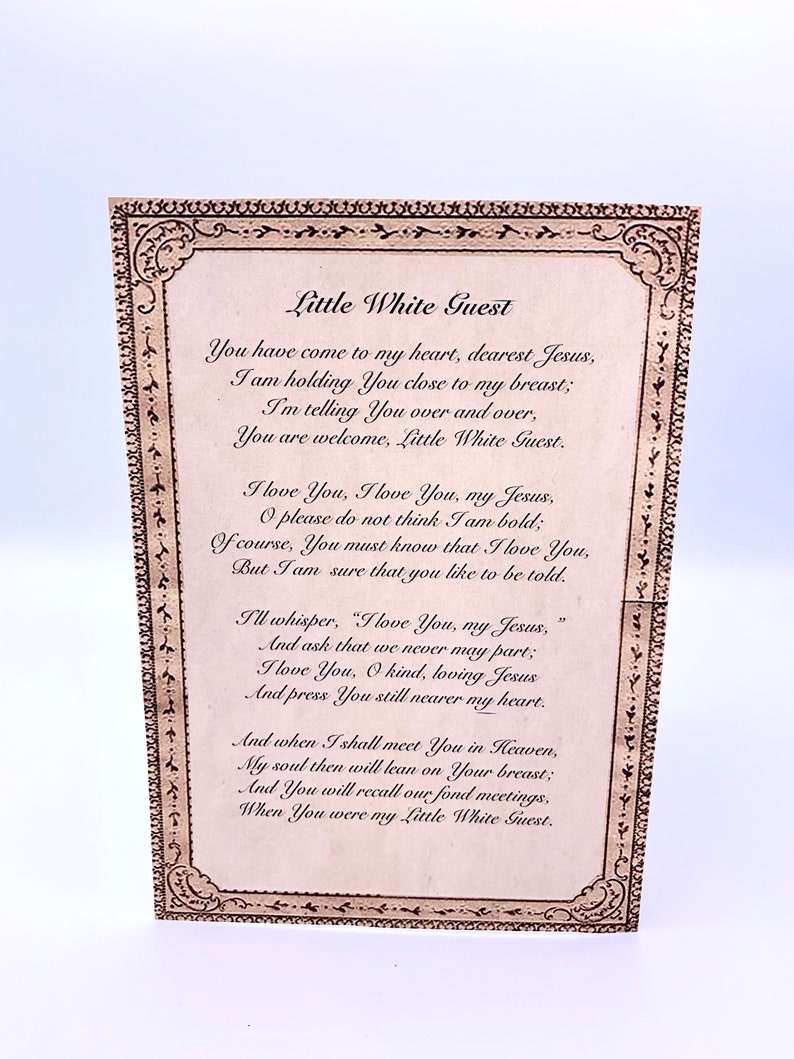 Little White Guest
You have come to my heart, dearest Jesus,
I am holding You close to my breast;
I'm telling You over and over,
You are welcome, Little White Guest.
I love You, I love You, my Jesus,
O please do not think I am bold;
Of course, You must know that I love You,
But I am sure that you like to be told.
I'll whisper, "I love You, my Jesus, "
And ask that we never may part;
I love You, O kind, loving Jesus
And press You still nearer my heart.
And when I shall meet You in Heaven,
My soul then will lean on Your breast;
And You will recall our fond meetings,
When You were my Little White Guest.